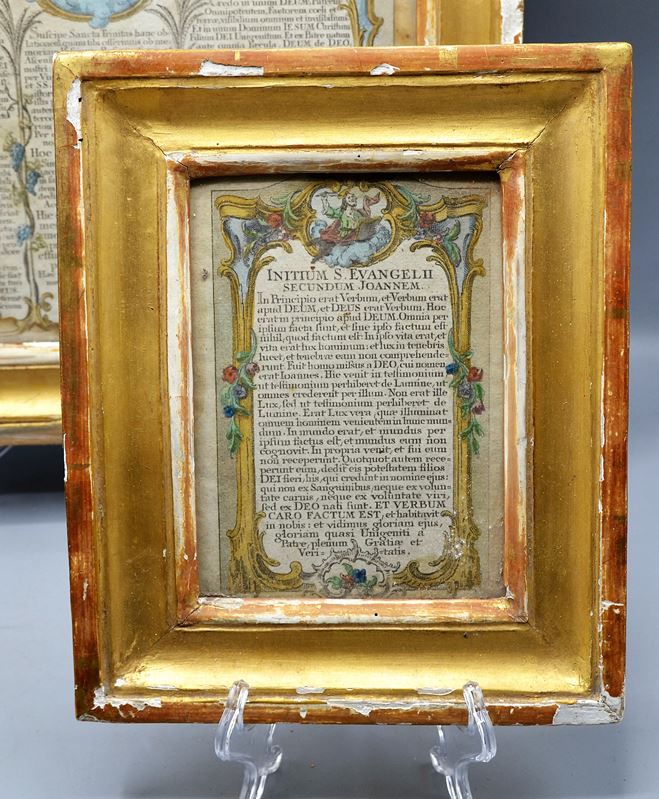 Credo in unum DEUM, Patrem
Omnipotentem, Factorem coeli et
terræ, visibilium omnium et invisibilium.
Et in unum Dominum IESUM Christum
Filium DEI Unigenitum. Et ex Patre natum
ante omnia Sæcula. DEUM de DEO,
Suscipe Sancta Trinitas hanc ob-
lationem, quam tibi offerimus ob me-
INITIUM S. EVANGELII
SECUNDUM JOANNEM.
In Principio erat Verbum, et Verbum erat
apud DEUM, et DEUS erat Verbum. Hoc
erat in principio apud DEUM. Omnia per
ipsum facta sunt, et sine ipso factum est
nihil, quod factum est: In ipso vita erat, et
vita erat lux hominum: et lux in tenebris
lucet, et tenebræ eum non comprehende=
runt. Fuit homo missus a DEO, cui nomen
erat Ioannes. Hic venit in testimonium
ut testimonium perhiberet de Lumine, ut
omnes crederent per illum. Non erat ille
Lux, sed ut testimonium perhiberet de
Lumine. Erat Lux vera, quæ illuminat
omnem hominem venientem in hunc mun
dum. In mundo erat, et mundus per
ipsum factus est, et mundus eum non
cognovit. In propria venit, et sui eum
non receperunt. Quotquot autem rece=
perunt eum, dedit eis potestatem filios
DEI fieri, his, qui credunt in nomine ejus:
qui non ex Sanguinibus, neque ex volun=
tate carnis, neque ex voluntate viri,
sed ex DEO nati sunt. ET VERBUM
CARO FACTUM EST, et habitavit
in nobis: et vidimus gloriam ejus,
gloriam quasi Unigeniti a
Patre, plenum Gratiæ et
Veri= tatis.